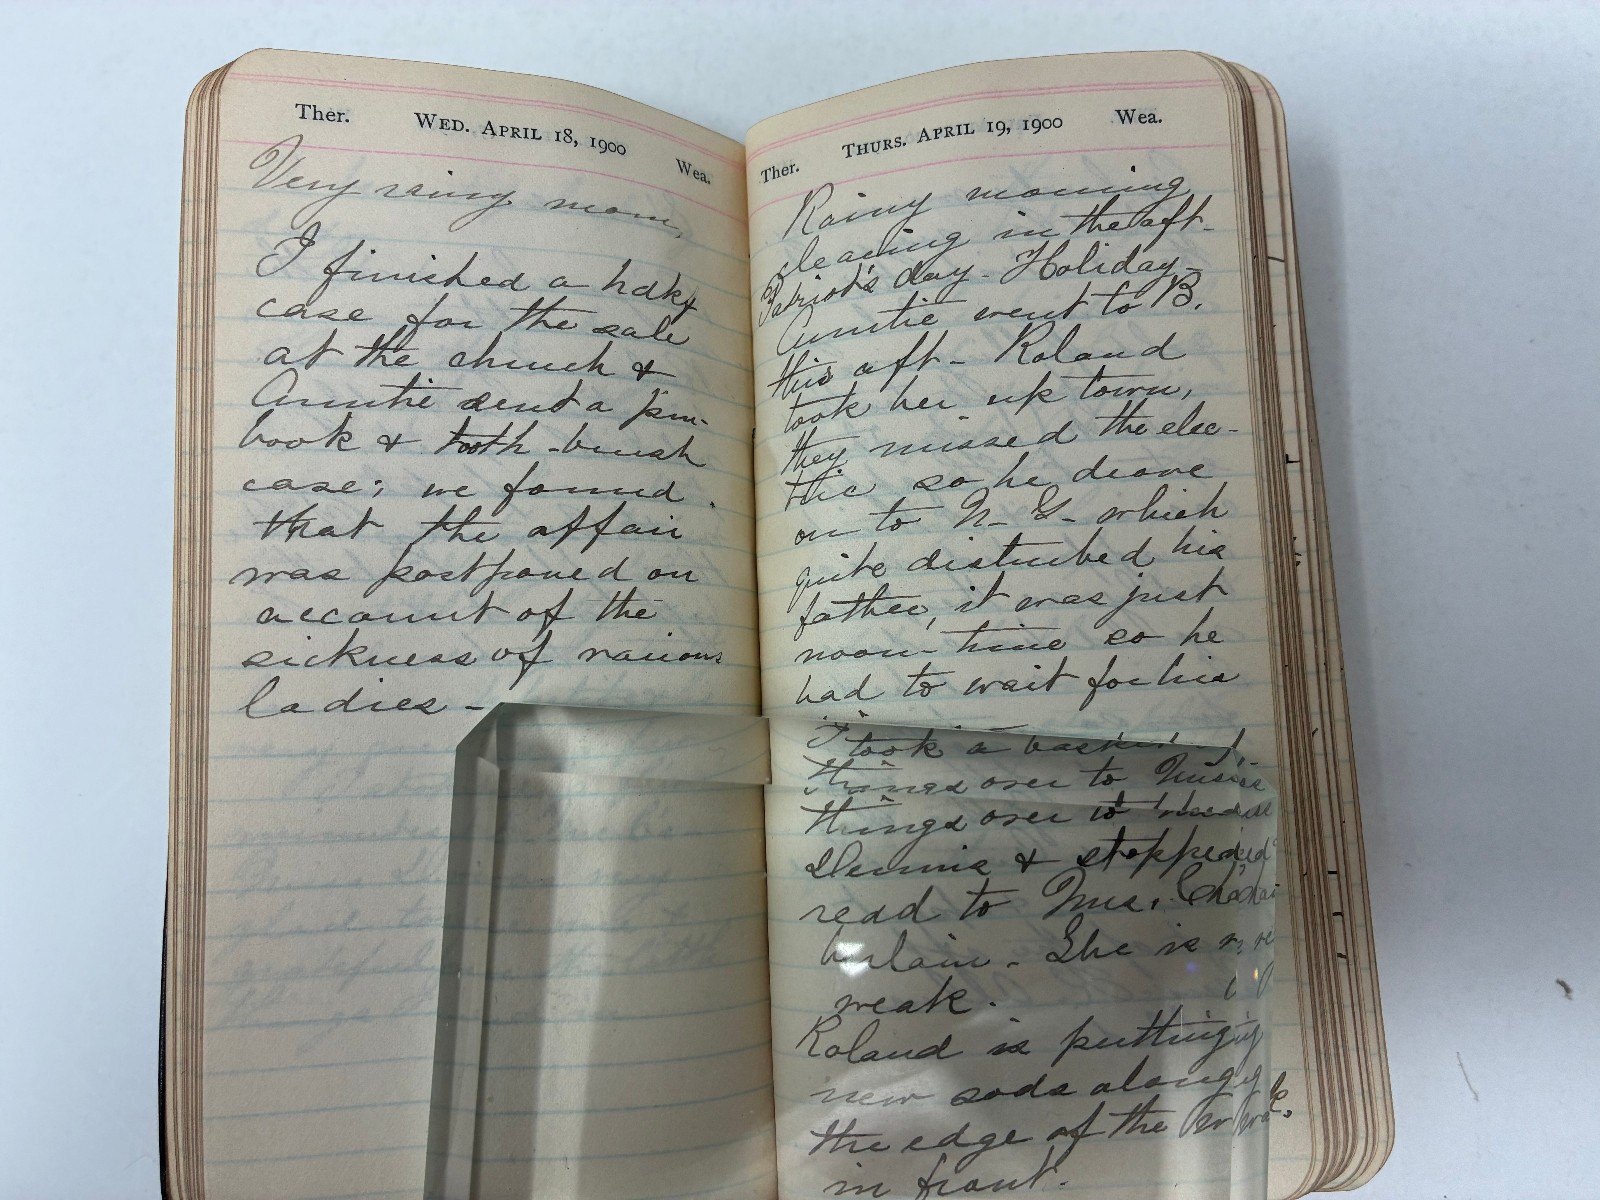 Ther. WED. APRIL 18, 1900 Wea.
Very rainy morn,
I finished a hdkf
case for the sale
at the church &
Auntie sent a pin-
book & tooth-brush
case; we found
that the affair
was postponed on
account of the
sickness of various
ladies -
Ther. THURS. APRIL 19, 1900 Wea.
Rainy morning
clearing in the aft-
Patriot's day - Holiday -
Auntie went to B.
this aft - Roland
took her up town,
they missed the elec-
tric so he drove
on to N - G - which
quite disturbed his
father, it was just
noon-time so he
had to wait for his
I took a basket
things over to
Dennis & stopped
read to Mrs. Cham
berlain - She is
weak.
Roland is putting
new sods along
the edge of the
in front.